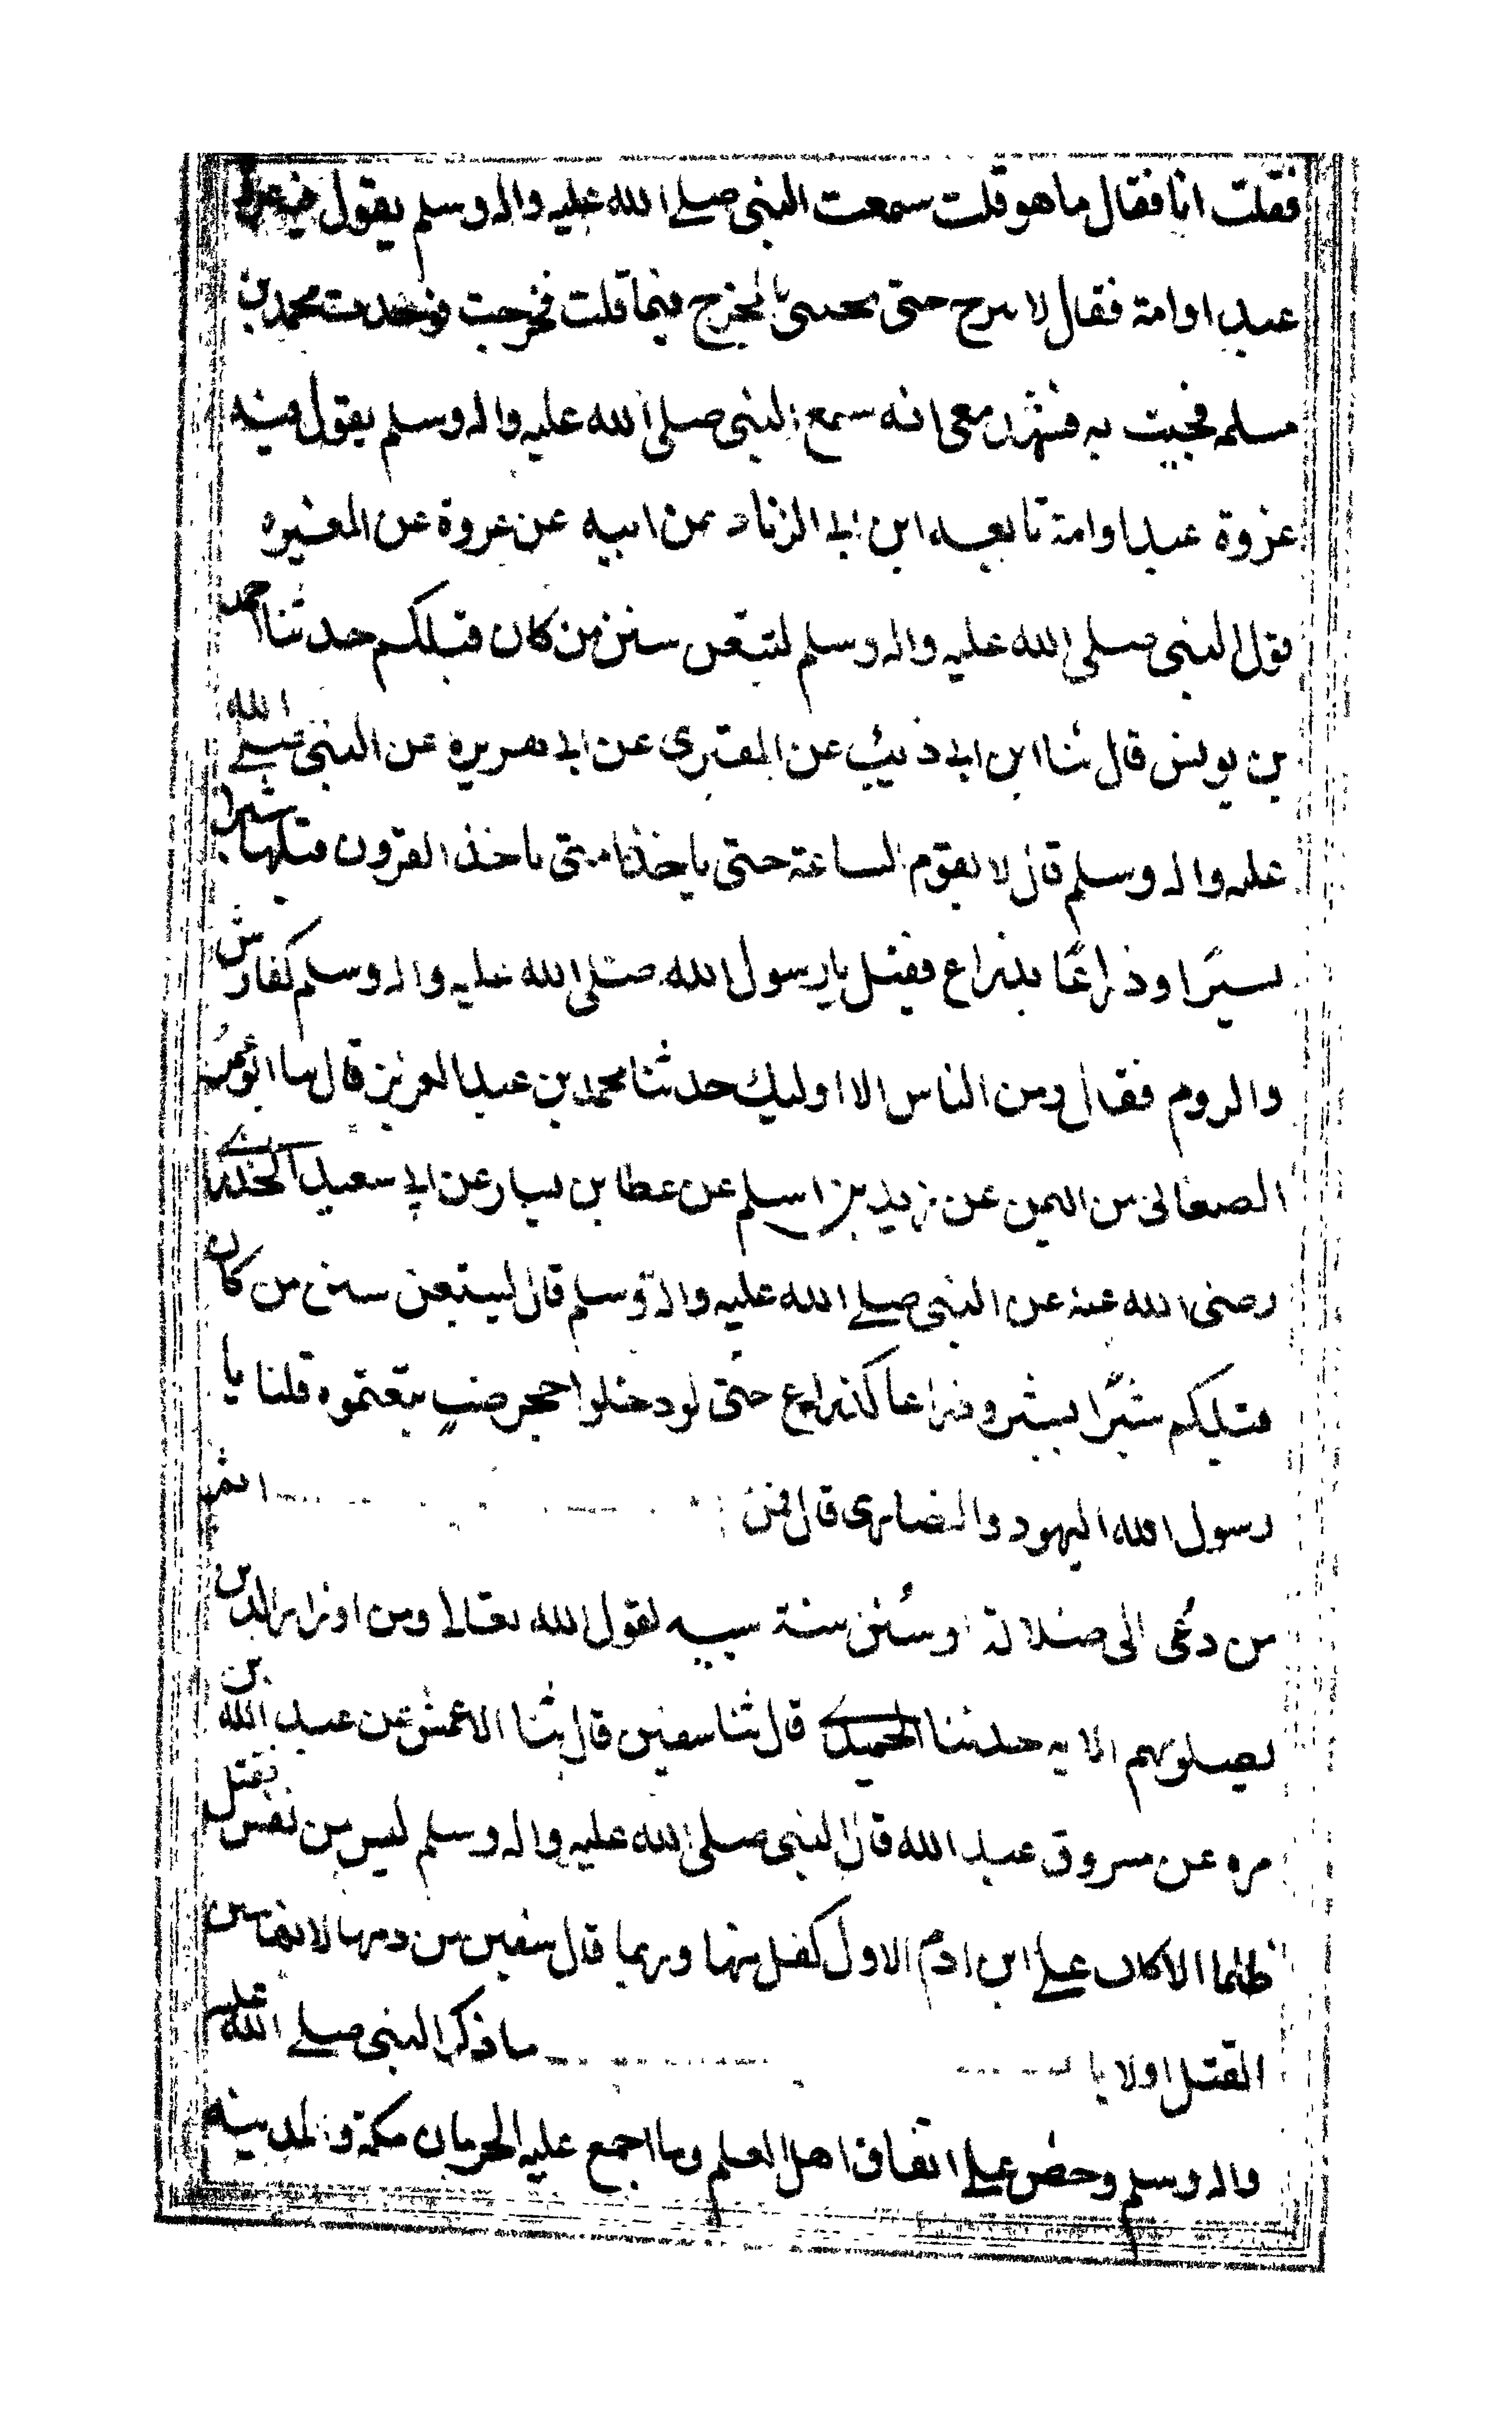 فقلت انا فقال ما هو قلت سمعت النبى صلے الله عليه واله وسلم يقول فيه غرة
عبد او امة فقال لا تبرح حتى تجيئى بالمخرج فيما قلت فخرجت فوجدت محمد بن
مسلمه فجيت به فشهد معى انه سمع النبى صلى الله عليه واله وسلم يقول فيه
غزوة عبد او امة تابعه ابن ابى الزناد عن ابيه عن عروة عن المغيره
قول النبى صلى الله عليه واله وسلم لتتبعن سنن من كان قبلكم حدثنا احمد
بن يونس قال ثنا ابن ابى ذئيب عن المقبرى عن ابى هريره عن النبى صلے الله
عليه واله وسلم قال لا يقوم الساعة حتى ياخذ امتى باخذ القرون قبلها شبرا
بسبرا وذراعًا بذراع فقيل يا رسول الله صلى الله عليه واله وسلم كفارش
والروم فقال ومن الناس الا اوليك حدثنا محمد بن عبد العزيز قال ثنا ابو عمر
الصغانى من اليمن عن زيد بن اسلم عن عطا بن يسار عن ابى سعيد الخدرے
رضى الله عنه عن النبى صلے الله عليه واله وسلم قال ليتبعن سنن من كان
قبلكم شبرًا بشبر وذراعا كذراع حتى لو دخلوا حجر ضب تبعتموه قلنا يا
رسول الله اليهود والنصارى قال فمن اثم
من دعى الى ضلالة او سُنن سنة سييه لقول الله تعالى ومن اوزار الذين
يضلونهم الايه حدثنا الحميدے قال ثنا سفين قال ثنا الاعمش عن عبد الله بن
مره عن مسروق عبد الله قال النبى صلى الله عليه واله وسلم ليس من نفس تقتل
ظلما الا كان علے ابن ادم الاول كفل منها وربما قال سفين من دمها لانه من سن
القتل اولا با ما ذكر النبى صلے الله عليه
واله وسلم وحض علے اتفاق اهل العلم وما اجمع عليه الحرمان مكة والمدينه